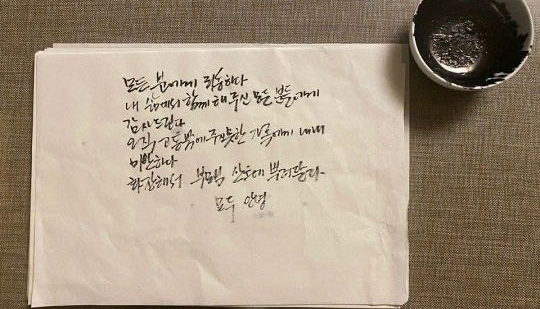 모든 분에게 죄송하다
내 삶에서 함께 해주신 모든 분들에게
감사드린다
오직 고통밖에 주지 못한 가족에게 내내
미안하다
화장해서 부모님 산소에 뿌려달라
모두 안녕